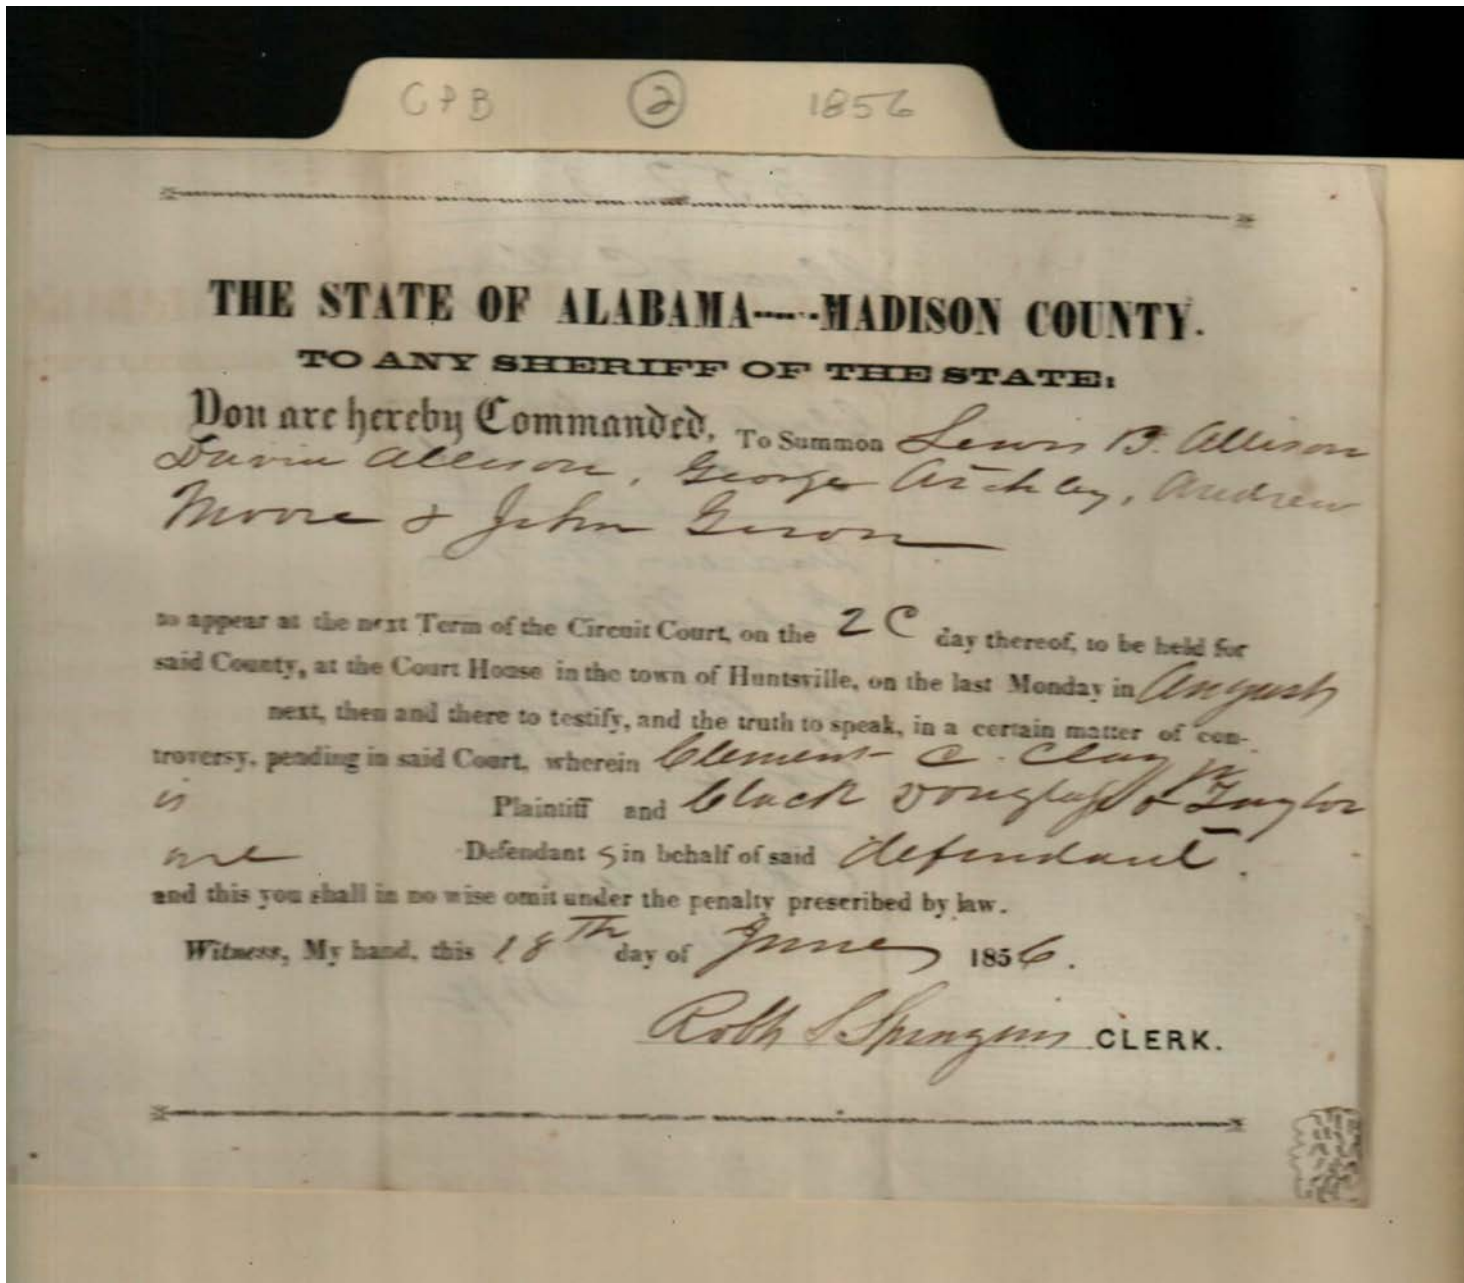 CPB 2 1856
THE STATE OF ALABAMA-----MADISON COUNTY.
TO ANY SHERIFF OF THE STATE:
You are hereby Commanded, To Summon Lewis B. Allison
David Allison, George Atchley, Andrew
Moore & John Geron
to appear at the next Term of the Circuit Court, on the 2 C day thereof, to be held for
said County, at the Court House in the town of Huntsville, on the last Monday in August
next, then and there to testify, and the truth to speak, in a certain matter of con-
troversy, pending in said Court, wherein Clement C. Clay jr
is Plaintiff and Clack Douglass & Taylor
are Defendant s in behalf of said defendant.
and this you shall in no wise omit under the penalty prescribed by law.
Witness, My hand, this 18th day of June 1856.
Robt S Spragins CLERK.